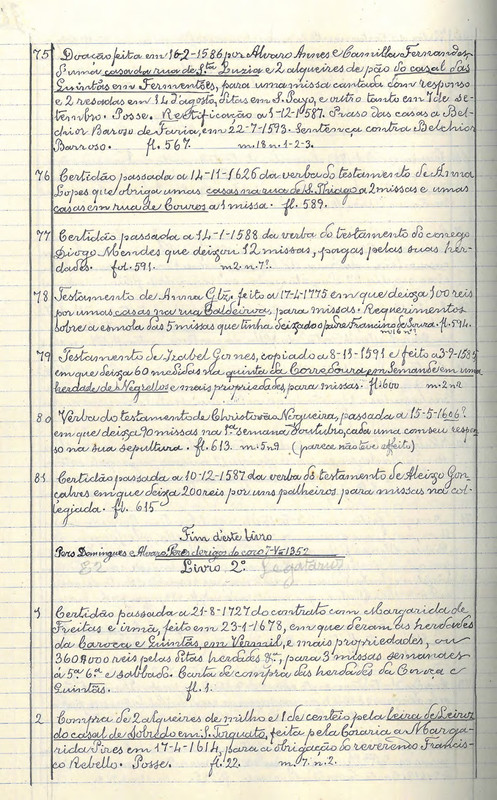 75 Doação feita em 16-2-1586 por Alvaro Annes e Camilla Fernandes
d'uma casa da rua de Sta Luzia e 2 alqueires de pão do casal das
Quintãs em Fermentões, para uma missa cantada com responso
e 2 resadas em 14 d'agosto, ditas em S. Payo, e outro tanto em 7 de se-
tembro. Posse. Rectificação a 5-12-1587. Praso das casas a Bel-
chior Baroso de Faria, em 22-7-1593. Sentença contra Belchior
Barroso. fl. 567. m. 18 n. 1-2-3.
76 Certidão passada a 14-11-1626 da verba do testamento de Anna
Lopes que obriga umas casas na rua de S. Thiago a 2 missas e umas
casas em rua de Couros a 1 missa. fl. 589.
77 Certidão passada a 14-1-1588 da verba do testamento do conego
Diogo Mendes que deixou 12 missas, pagas pelas suas her-
dades. fol. 591. m 2. n. 7.
78 Testamento de Anna Glz. feito a 17-4-1775 em que deixa 100 reis
por umas casas na rua Caldeirôa, para missas. Requerimentos
sobre a esmola das 5 missas que tinha deixado o padre Francisco de fl. 594.
m 16 n.
79 Testamento de Izabel Gomes, copiado a 8-11-1591 e feito a 3-9-1585
em que deixa 60 medidas na quinta da Corredoura em uma
herdade de Negrellos e mais propriedades, para missas. fl. 600 m. 2 n.
80 Verba do testamento de Christovão Nogueira, passada a 15-5-1606?
em que deixa 90 missas na 1ª semana d'outubro, cada uma com seu respon-
so na sua sepultura. fl. 613. m. 5 n. 9 (parece não teve effeito)
81 Certidão passada a 10-12-1587 da verba do testamento de Aleixo Gon-
çalves em que deixa 200 reis por uns palheiros para missas na col-
legiada. fl. 615
Fim d'este livro
Pero Domingues e Alvaro Peres clerigos do coro 7-V-1352
82 Livro 2º Legatarios
1 Certidão passada a 21-8-1727 do contrato com Margarida de
Freitas e irmã, feito em 23-1-1678, em que deram as herdades
da Caroca e Quintãs, em Vermil, e mais propriedades, ou
360$000 reis pelas ditas herdades &ª, para 3 missas semanaes
á 5ª 6ª e sabbado. Carta de compra das herdades da Coroca e
Quintãs. fl. 1.
2 Compra de 2 alqueires de milho e 1 de centeio pela leira de Leiroz
do casal de Sobredo em S. Torquato, feita pela Coraria a Marga-
rida Pires em 17-4-1614, para a obrigação do reverendo Francis-
co Rebello. Posse. fl. 22. m. 7. n. 2.